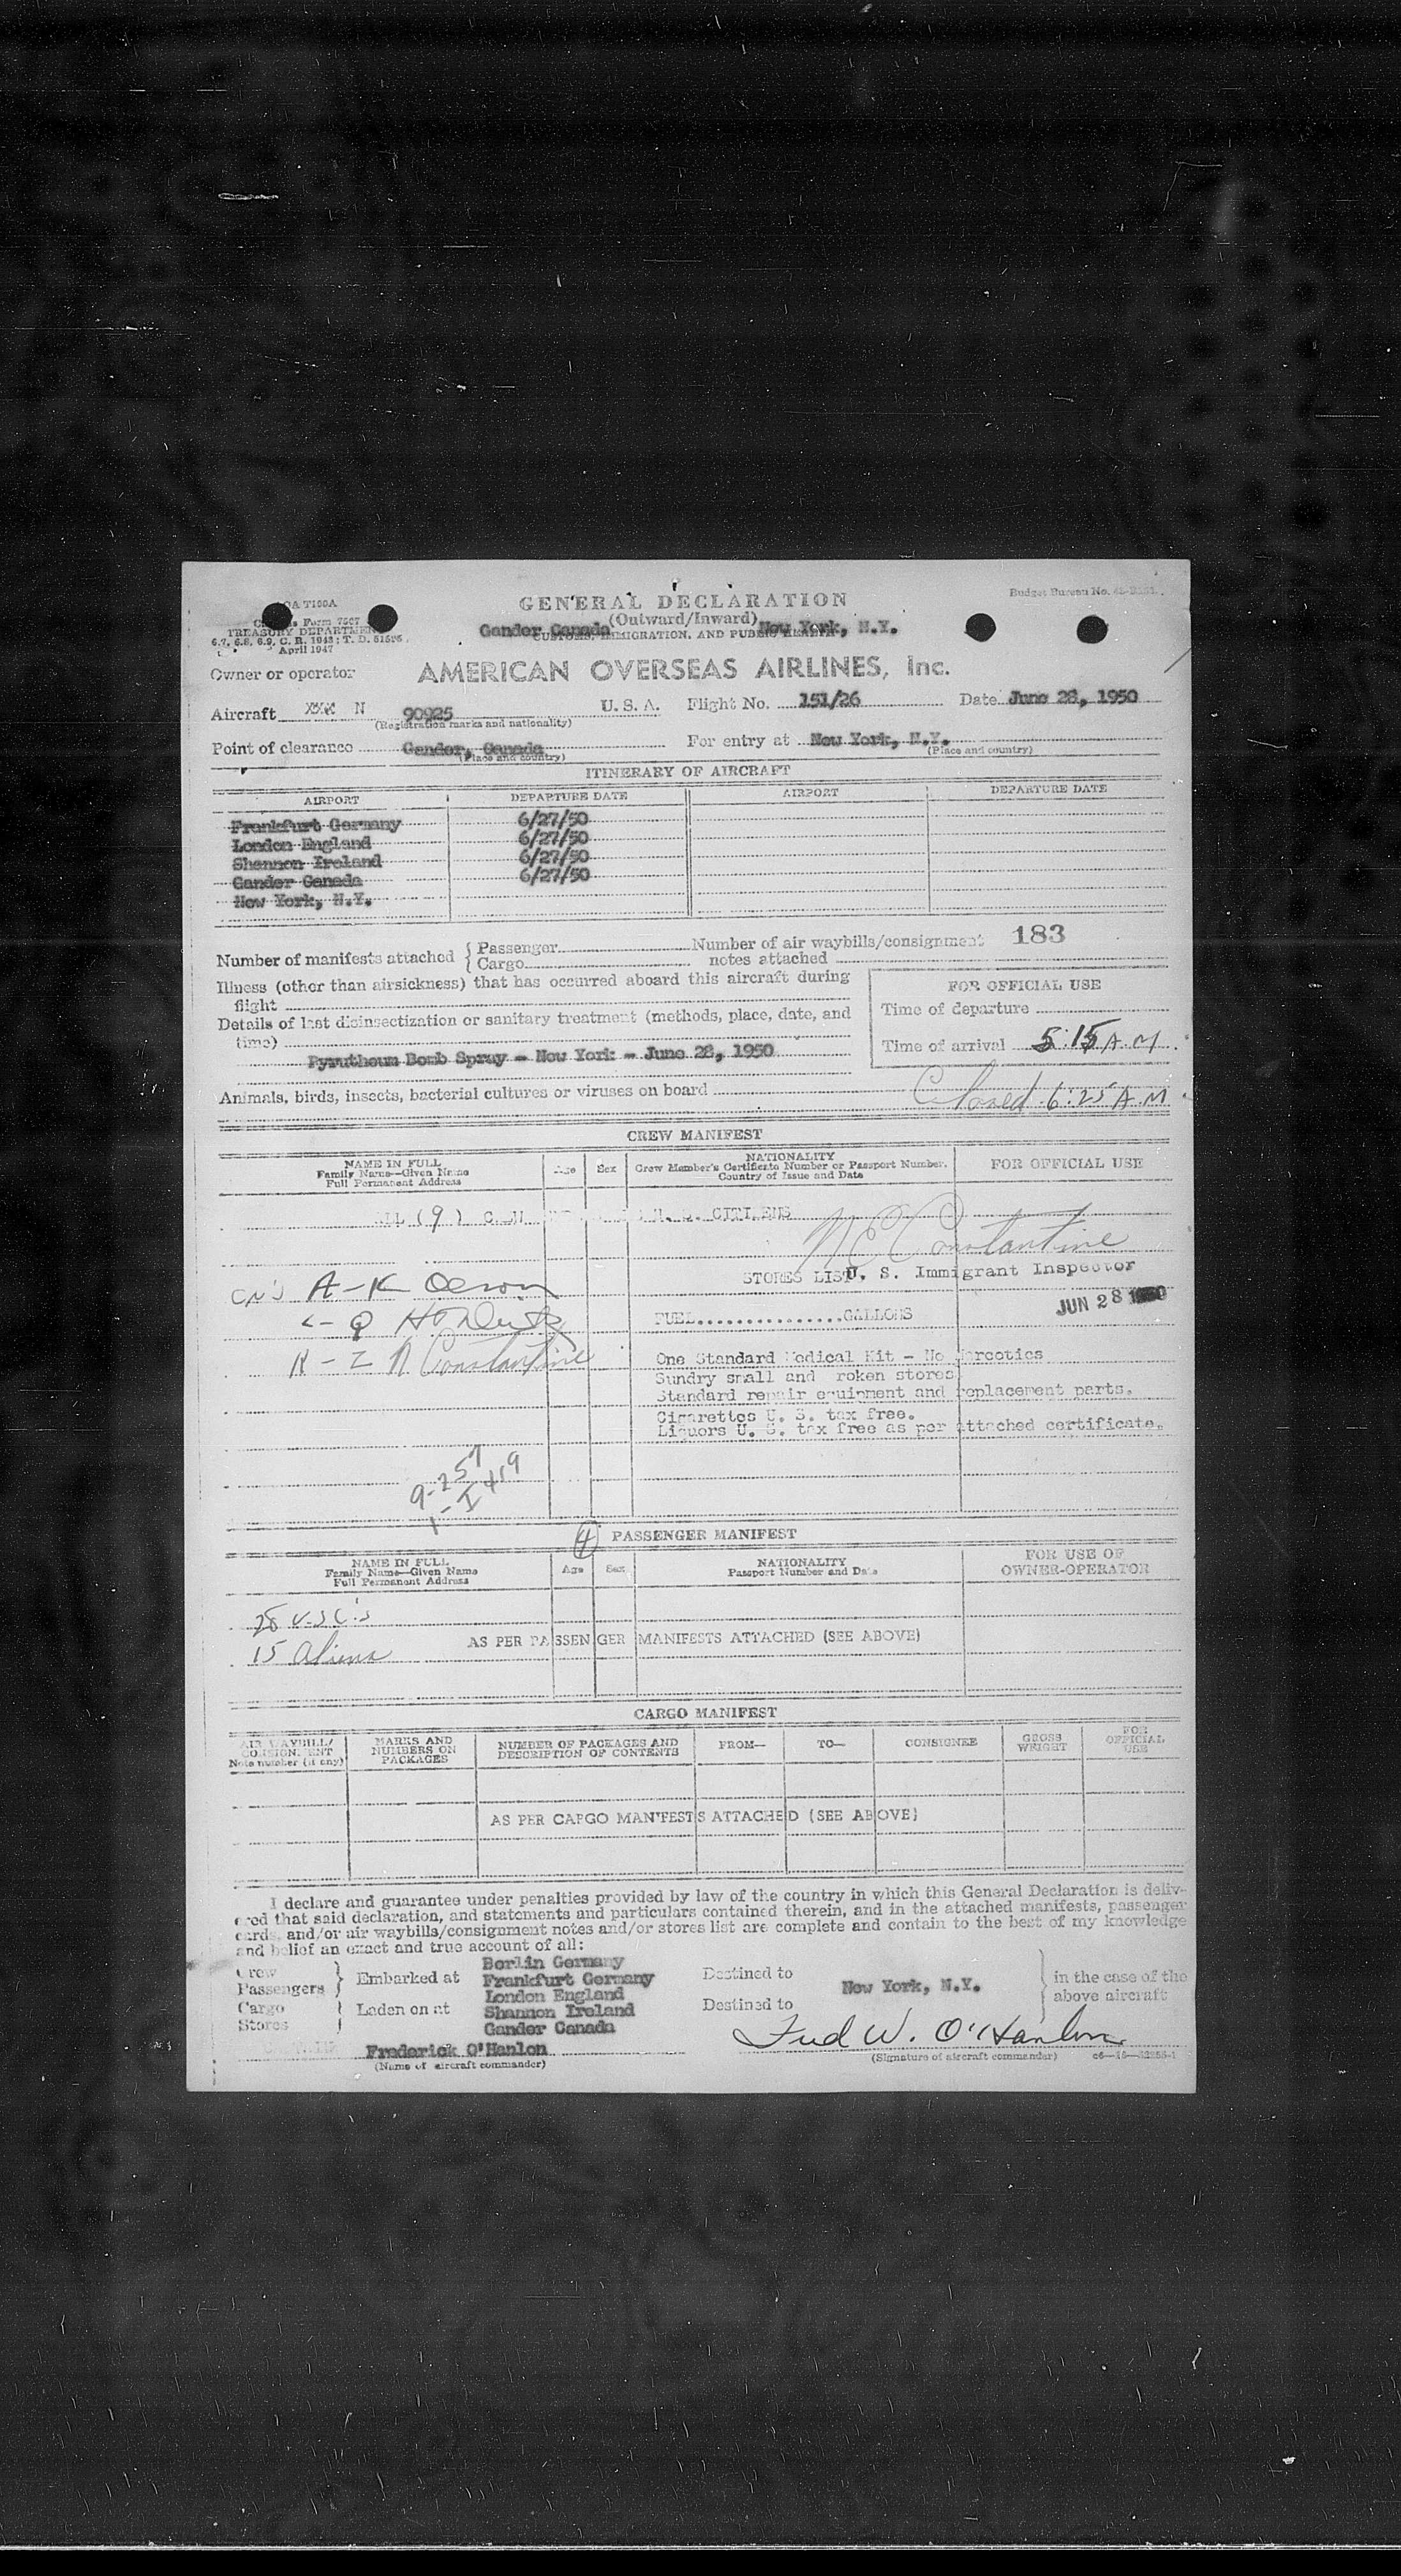 GENERAL DECLARATION
Budget Bureau No.
(Outward/Inward)
TREASURY DEPARTMENT
Gander Canada New York, N.Y.
CUSTOMS, IMMIGRATION, AND PUBLIC HEALTH
April 1947
Owner or operator AMERICAN OVERSEAS AIRLINES, Inc.
Aircraft N 90925 U. S. A. Flight No. 151/26 Date June 28, 1950
(Registration marks and nationality)
Point of clearance Gander, Canada For entry at New York, N.Y.
(Place and country) (Place and country)
ITINERARY OF AIRCRAFT
AIRPORT DEPARTURE DATE AIRPORT DEPARTURE DATE
Frankfurt Germany 6/27/50
London England 6/27/50
Shannon Ireland 6/27/50
Gander Canada 6/27/50
New York, N.Y.
183
Number of manifests attached { Passenger Number of air waybills/consignment
Cargo notes attached
Illness (other than airsickness) that has occurred aboard this aircraft during
flight
FOR OFFICIAL USE
Time of departure
Details of last disinsectization or sanitary treatment (methods, place, date, and
time)
Time of arrival 5:15 A M
Pyrutheum Bomb Spray - New York - June 28, 1950
Animals, birds, insects, bacterial cultures or viruses on board
Closed 6:25 A M
CREW MANIFEST
NAME IN FULL
Family Name—Given Name
Full Permanent Address
Age Sex
NATIONALITY
Crew Member's Certificate Number or Passport Number.
Country of Issue and Date
FOR OFFICIAL USE
(9) U. S. CITIZENS
N C Constantine
STORES LIST
U. S. Immigrant Inspector
JUN 28 1950
A-K
FUEL...............GALLONS
N Constantine
One Standard Medical Kit - No Narcotics
Sundry small and roken stores
Standard repair equipment and replacement parts.
Cigarettes U. S. tax free.
Liquors U. S. tax free as per attached certificate.
(4)
PASSENGER MANIFEST
NAME IN FULL
Family Name—Given Name
Full Permanent Address
Age Sex
NATIONALITY
Passport Number and Date
FOR USE OF
OWNER-OPERATOR
28 U.S C's
15 Aliens
AS PER PASSENGER MANIFESTS ATTACHED (SEE ABOVE)
CARGO MANIFEST
AIR WAYBILL/
CONSIGNMENT
Note number (if any)
MARKS AND
NUMBERS ON
PACKAGES
NUMBER OF PACKAGES AND
DESCRIPTION OF CONTENTS
FROM— TO— CONSIGNEE
GROSS
WEIGHT
FOR
OFFICIAL
USE
AS PER CARGO MANIFESTS ATTACHED (SEE ABOVE)
I declare and guarantee under penalties provided by law of the country in which this General Declaration is deliv-
ered that said declaration, and statements and particulars contained therein, and in the attached manifests, passenger
cards, and/or air waybills/consignment notes and/or stores list are complete and contain to the best of my knowledge
and belief an exact and true account of all:
Crew
Passengers } Embarked at
Cargo
Stores } Laden on at
Berlin Germany
Frankfurt Germany
London England
Shannon Ireland
Gander Canada
Destined to
Destined to
New York, N.Y.
in the case of the
above aircraft
Frederick O'Hanlon
(Name of aircraft commander)
Fred W. O'Hanlon
(Signature of aircraft commander)